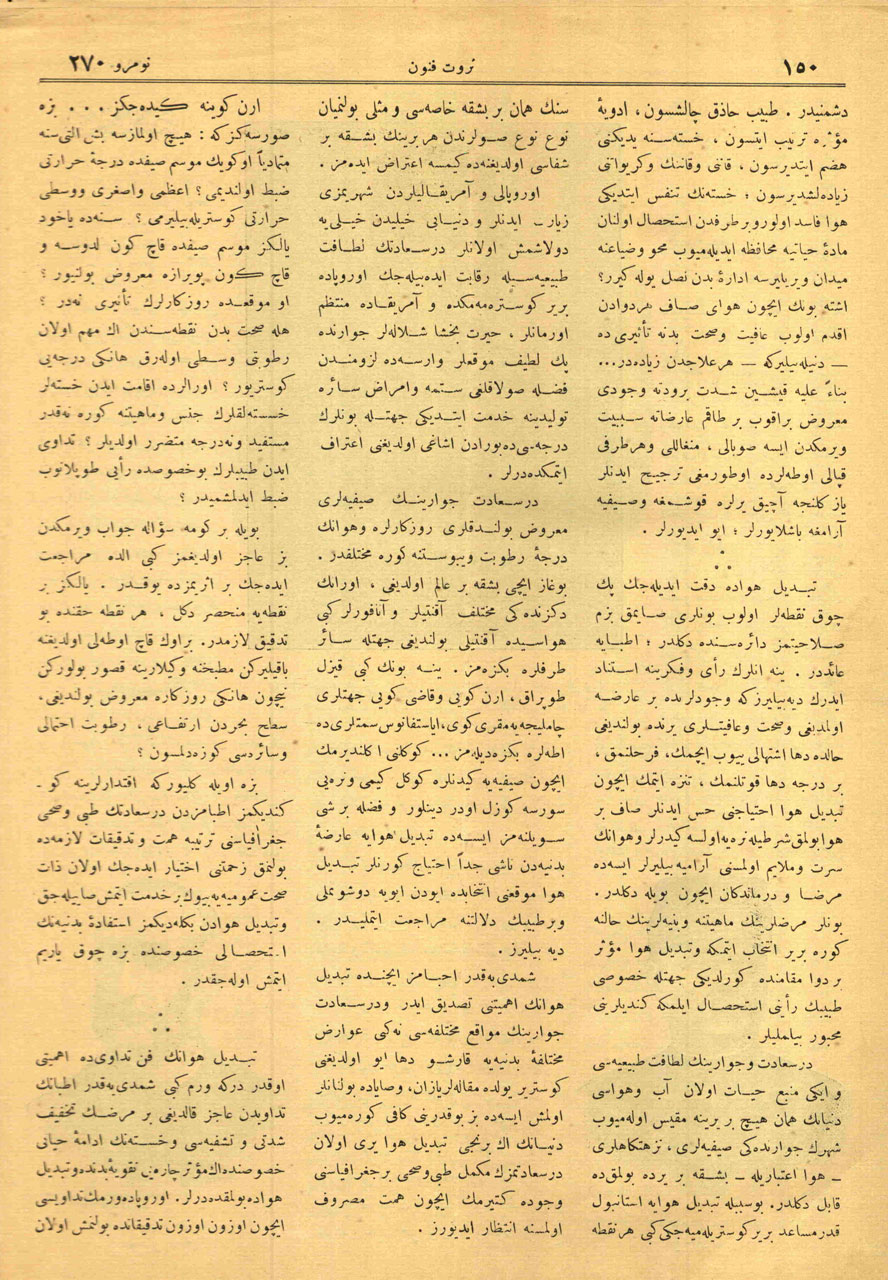 ١٥٠
ثروت فنون
نومرو ٢٧٠
دشمنیدر . طبیب حاذق چالشسون ، ادویهٔ
مؤثره ترتیب ایتسون ، خسته‌سنه یدیكنی
هضم ایتدیرسون ، قانی وقاننك وكریواتی
زیاده‌لشدیرسون ؛ خسته‌نك تنفس ایتدیكی
هوا فاسد اولور وبرطرفدن استحصال اولنان
مادهٔ حیاتیه محافظه ایدیله‌میوب محو وضیاعنه
میدان ویریلیرسه ادارهٔ بدن نصل یوله كیرر؟
اشته بونك ایچون هوای صاف هردوادن
اقدم اولوب عافیت وصحت بدنه تأثیری ده
— دنیله‌بیلیركه — هرعلاجدن زیاده‌در...
بناءً علیه قیشین شدت برودته وجودی
معروض براقوب بر طاقم عارضاته سببیت
ویرمكدن ایسه صوبالی ، منغاللی وهرطرفی
قپالی اوطه‌لرده اوطورمغی ترجیح ایدنلر
یاز كلنجه آچیق یرلره قوشمغه وصیفیه
آرامغه باشلایورلر ؛ ایو ایدیورلر .
تبدیل هواده دقت ایدیله‌جك پك
چوق نقطه‌لر اولوب بونلری صایمق بزم
صلاحیتمز دائره‌سنده دكلدر ؛ اطبایه
عائددر . ینه انلرك رأی وفكرینه استناد
ایدرك دیه‌بیلیرزكه وجودلرنده بر عارضه
اولمدیغی وصحت وعافیتلری یرنده بولندیغی
حالده دها اشتهالی ییوب ایچمك، فرحلنمق ،
بر درجه دها قوتلنمك ، تنزه اتمك ایچون
تبدیل هوا احتیاجنی حس ایدنلر صاف بر
هوا بولمق شرطیله نره‌یه اولسه كیدرلر وهوانك
سرت وملایم اولمسنی آرامیه بیلیرلر ایسه‌ده
مرضا و درماندكان ایچون بویله دكلدر .
بونلر مرضلرینك ماهیتنه وبنیه‌لرینك حالنه
كوره بریر انتخاب ایتمكه وتبدیل هوا مؤثر
بر دوا مقامنده كورلدیكی جهتله خصوصی
طبیبك رأینی استحصال ایلمكه كندیلرینی
مجبور بیلملیلر .
درسعادت وجوارینك لطافت طبیعیه‌سی
و ایكی منبع حیات اولان آب وهواسی
دنیانك همان هیچ بر یرینه مقیس اوله‌میوب
شهرك جوارنده‌كی صیفیه‌لری ، نزهتكاهلری
ـ هوا اعتباریله ـ بشقه بر یرده بولمق‌ده
قابل دكلدر. بوسبیله تبدیل هوایه استانبول
قدر مساعد بریر كوستریله‌میه‌جكی كبی هر نقطه
سنك همان بر بشقه خاصه‌سی و مثلی بولنمیان
نوع نوع صولرندن هر برینك بشقه بر
شفاسی اولدیغنه‌ده كیمسه اعتراض ایده‌مز .
اوروپالی و آمریقالیلردن شهریمزی
زیارت ایدنلر و دنیایی خیلیدن خیلی‌یه
دولاشمش اولانلر درسعادتك لطافت
طبیعیه‌سیله رقابت ایده‌بیله‌جك اوروپاده
بریر كوستره‌مه‌مكده و آمریقاده منتظم
اورمانلر ، حیرت بخشا شلاله‌لر جوارنده
پك لطیف موقعلر وارسه‌ده لزومندن
فضله صولاقلغی ستمه وامراض سائره
تولیدینه خدمت ایتدیكی جهتله بونلرك
درجه‌سی‌ده بورادن اشاغی اولدیغنی اعتراف
ایتمكده‌درلر .
درسعادت جوارینك صیفیه‌لری
معروض بولندقلری روزكارلره وهوانك
درجهٔ رطوبت ویبوستنه كوره مختلفدر .
بوغاز ایچی بشقه بر عالم اولدیغی ، اورانك
دكزنده‌كی مختلف آقنتیلر و آنافورلر كبی
هواسیده آقنتیلی بولندیغی جهتله سائر
طرفلره بكزه‌مز . ینه بونك كبی قیزل
طوپراق ، ارن كویی وقاضی كویی جهتلری
چاملیجه‌یه مقری كوی، ایاستفانوس سمتلری‌ده
اطه‌لره بكزه‌دیله‌مز ... كوكلنی اكلندیرمك
ایچون صیفیه‌یه كیدنلره كوكل كیمی ونره‌یی
سورسه كوزل اودر دینلور و فضله بر شی
سویلنه‌مز ایسه‌ده تبدیل هوایه عارضهٔ
بدنیه‌دن ناشی جداً احتیاج كورنلر تبدیل
هوا موقعنی انتخابده ایودن ایویه دوشونملی
وبرطبیبك دلالتنه مراجعت ایتملیدر .
دیه بیلیرز .
شمدی‌یه‌قدر احبامز ایچنده تبدیل
هوانك اهمیتنی تصدیق ایدر ودرسعادت
جوارینك مواقع مختلفه‌سی نه‌كبی عوارض
مختلفهٔ بدنیه‌یه قارشو دها ایو اولدیغنی
كوستریر یولده مقاله‌لر یازان، وصایاده بولنانلر
اولمش ایسه‌ده بز بوقدرینی كافی كوره‌میوب
دنیانك اك برنجی تبدیل هوا یری اولان
درسعادتمزك مكمل طبی وصحی بر جغرافیاسنی
وجوده كتیرمك ایچون همت مصروف
اولمسنه انتظار ایدیورز .
ارن كوینه كیده‌جكز . . . بزه
صورسه‌كزكه : هیچ اولمازسه بش التی سنه
متمادیاً اوكویك موسم صیفده درجهٔ حرارتی
ضبط اولندیمی ؟ اعظمی واصغری ووسطی
حرارتی كوستریله‌بیلیرمی ؟ سنه‌ده یاخود
یالكز موسم صیفده قاچ كون لدوسه و
قاچ كون پویرازه معروض بولنیور ؟
او موقعده روزكارلرك تأثیری نه‌در ؟
هله صحت بدن نقطه‌سندن اك مهم اولان
رطوبتی وسطی اوله‌رق هانكی درجه‌یی
كوستریور ؟ اورالرده اقامت ایدن خسته‌لر
خسته‌لقلرك جنس وماهیتنه كوره نه‌قدر
مستفید ونه‌درجه متضرر اولدیلر ؟ تداوی
ایدن طبیبلرك بوخصوصده رأیی طوپلانوب
ضبط ایدلمشمیدر ؟
بویله بر كومه سؤاله جواب ویرمكدن
بز عاجز اولدیغمز كبی الده مراجعت
ایده‌جك بر اثریمزده یوقدر . یالكز بر
نقطه‌یه منحصر دكل ، هر نقطه حقنده بو
تدقیق لازمدر. براوك قاچ اوطه‌لی اولدیغنه
باقیلیركن مطبخنه وكیلارینه قصور بولوركن
نیچون هانكی روزكاره معروض بولندیغی،
سطح بحردن ارتفاعی ، رطوبت احتمالی
وسائره‌سی كوزه‌دلمسون ؟
بزه اویله كلیوركه اقتدارلرینه كو ـ
كندیكمز اطبامزدن درسعادتك طبی وصحی
جغرافیاسنی ترتیبه همت و تدقیقات لازمه‌ده
بولنمق زحمتنی اختیار ایده‌جك اولان ذات
صحت عمومیه‌یه بیوك بر خدمت ایتمش صاییله‌جق
وتبدیل هوادن بكله‌دیكمز استفادهٔ بدنیه‌نك
استحصالی خصوصنده بزه چوق یاریم
ایتمش اوله‌جقدر .
تبدیل هوانك فن تداوی‌ده اهمیتی
اوقدر دركه ورم كبی شمدی‌یه‌قدر اطبانك
تداویدن عاجز قالدیغی بر مرضك تخفیف
شدتی و تشفیه‌سی وخسته‌نك ادامهٔ حیاتی
خصوصنده‌اك مؤثر چاره‌یی تقویهٔ بدنده وتبدیل
هواده بولمقده‌درلر. اوروپاده ورمك تداویسی
ایچون اوزون اوزون تدقیقاتده بولنمش اولان